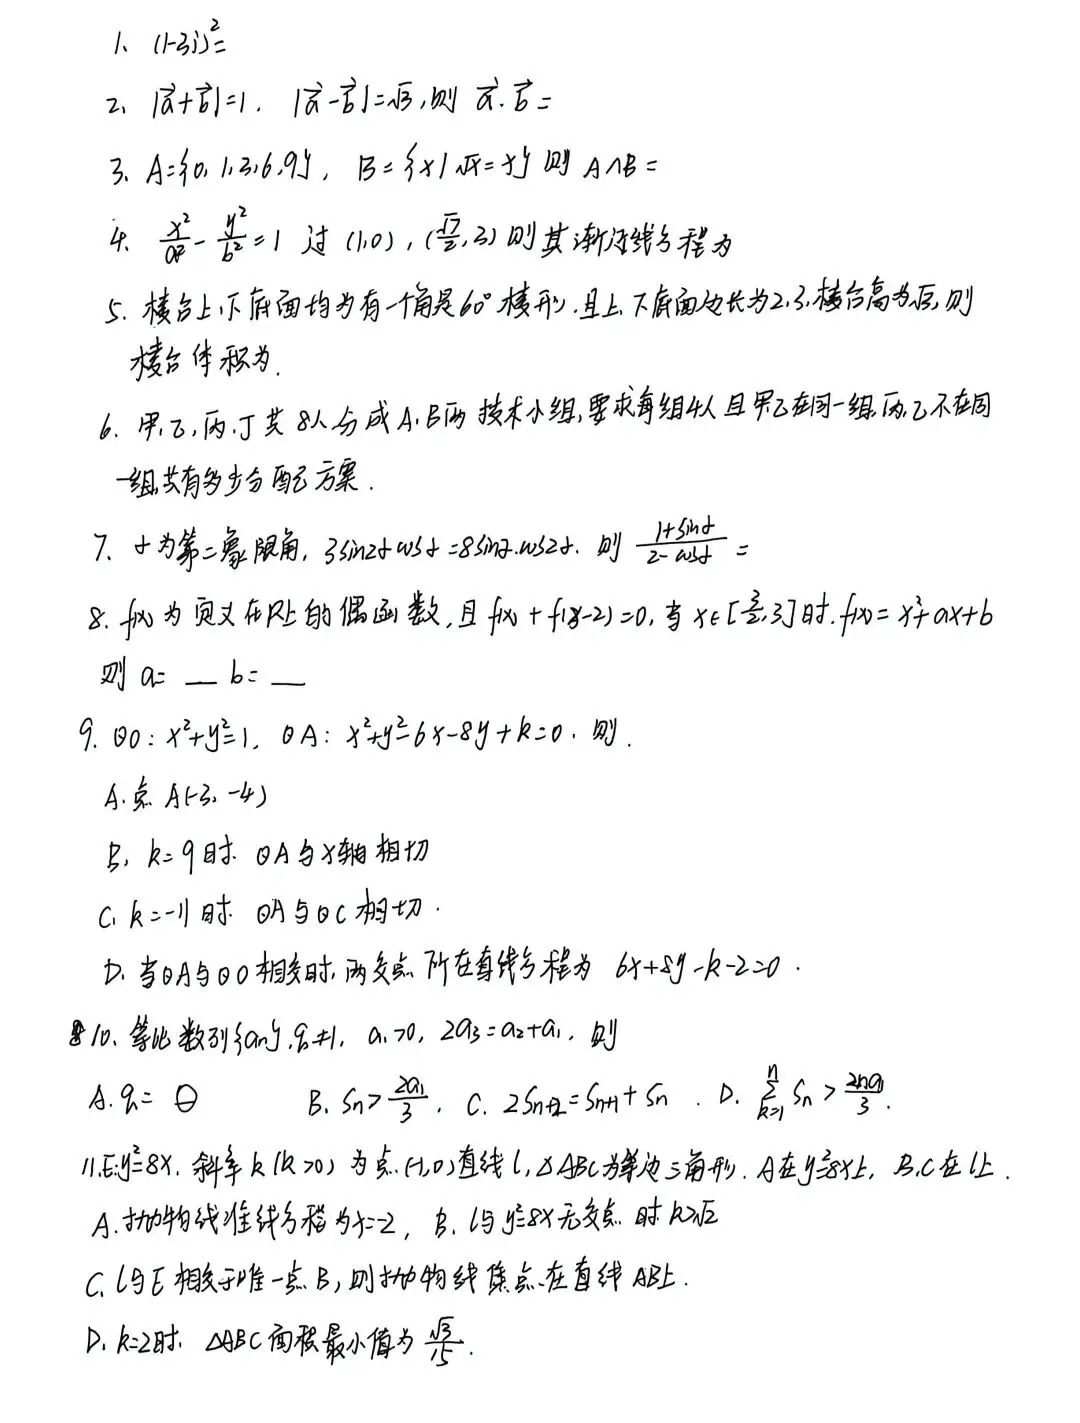 1、(1-3i)²=
2、|a⃗+b⃗|=1. |a⃗-b⃗|=√3,则 a⃗·b⃗=
3、A={0,1,3,6,9}, B={x|√x=x} 则 A∩B=
4. x²/a² - y²/b² = 1 过 (1,0), (√7/2,3) 则其渐近线方程为
5. 棱台上、下底面均为有一个角是60°棱形.且上、下底面边长为2,3,棱台高为√3,则
棱台体积为.
6. 甲,乙,丙,丁共8人分成A,B两技术小组,要求每组4人且甲乙在同一组,丙,乙不在同
一组,共有多少分配方案.
7. α为第二象限角, 3sin2αcosα=8sinα·cos2α. 则 (1+sinα)/(2-cosα) =
8. f(x)为定义在R上的偶函数,且f(x)+f(x-2)=0,当x∈[3/2,3]时.f(x)=x²+ax+b
则 a= __ b= __
9. ⊙O: x²+y²=1, ⊙A: x²+y²-6x-8y+k=0. 则.
A.点A(-3,-4)
B, k=9时. ⊙A与x轴相切
C, k=-11时. ⊙A与⊙C相切.
D. 当⊙A与⊙O相交时,两交点所在直线方程为 6x+8y-k-2=0.
10、等比数列{an},q≠1, a₁>0, 2a₃=a₂+a₁,则
A. q= B. Sn>2a₁/3. C. 2Sn+2=Sn+1+Sn. D. ∑(k=1→n) Sn > 2na₁/3.
11.E:y²=8x. 斜率k(k>0)为点(-1,0)直线l,△ABC为等边三角形. A在y²=8x上, B,C在l上.
A.抛物线准线方程为x=-2, B. l与y²=8x无交点时k>√2
C. l与E相交于唯一点B,则抛物线焦点在直线AB上.
D. k=2时. △ABC面积最小值为 √3/15.